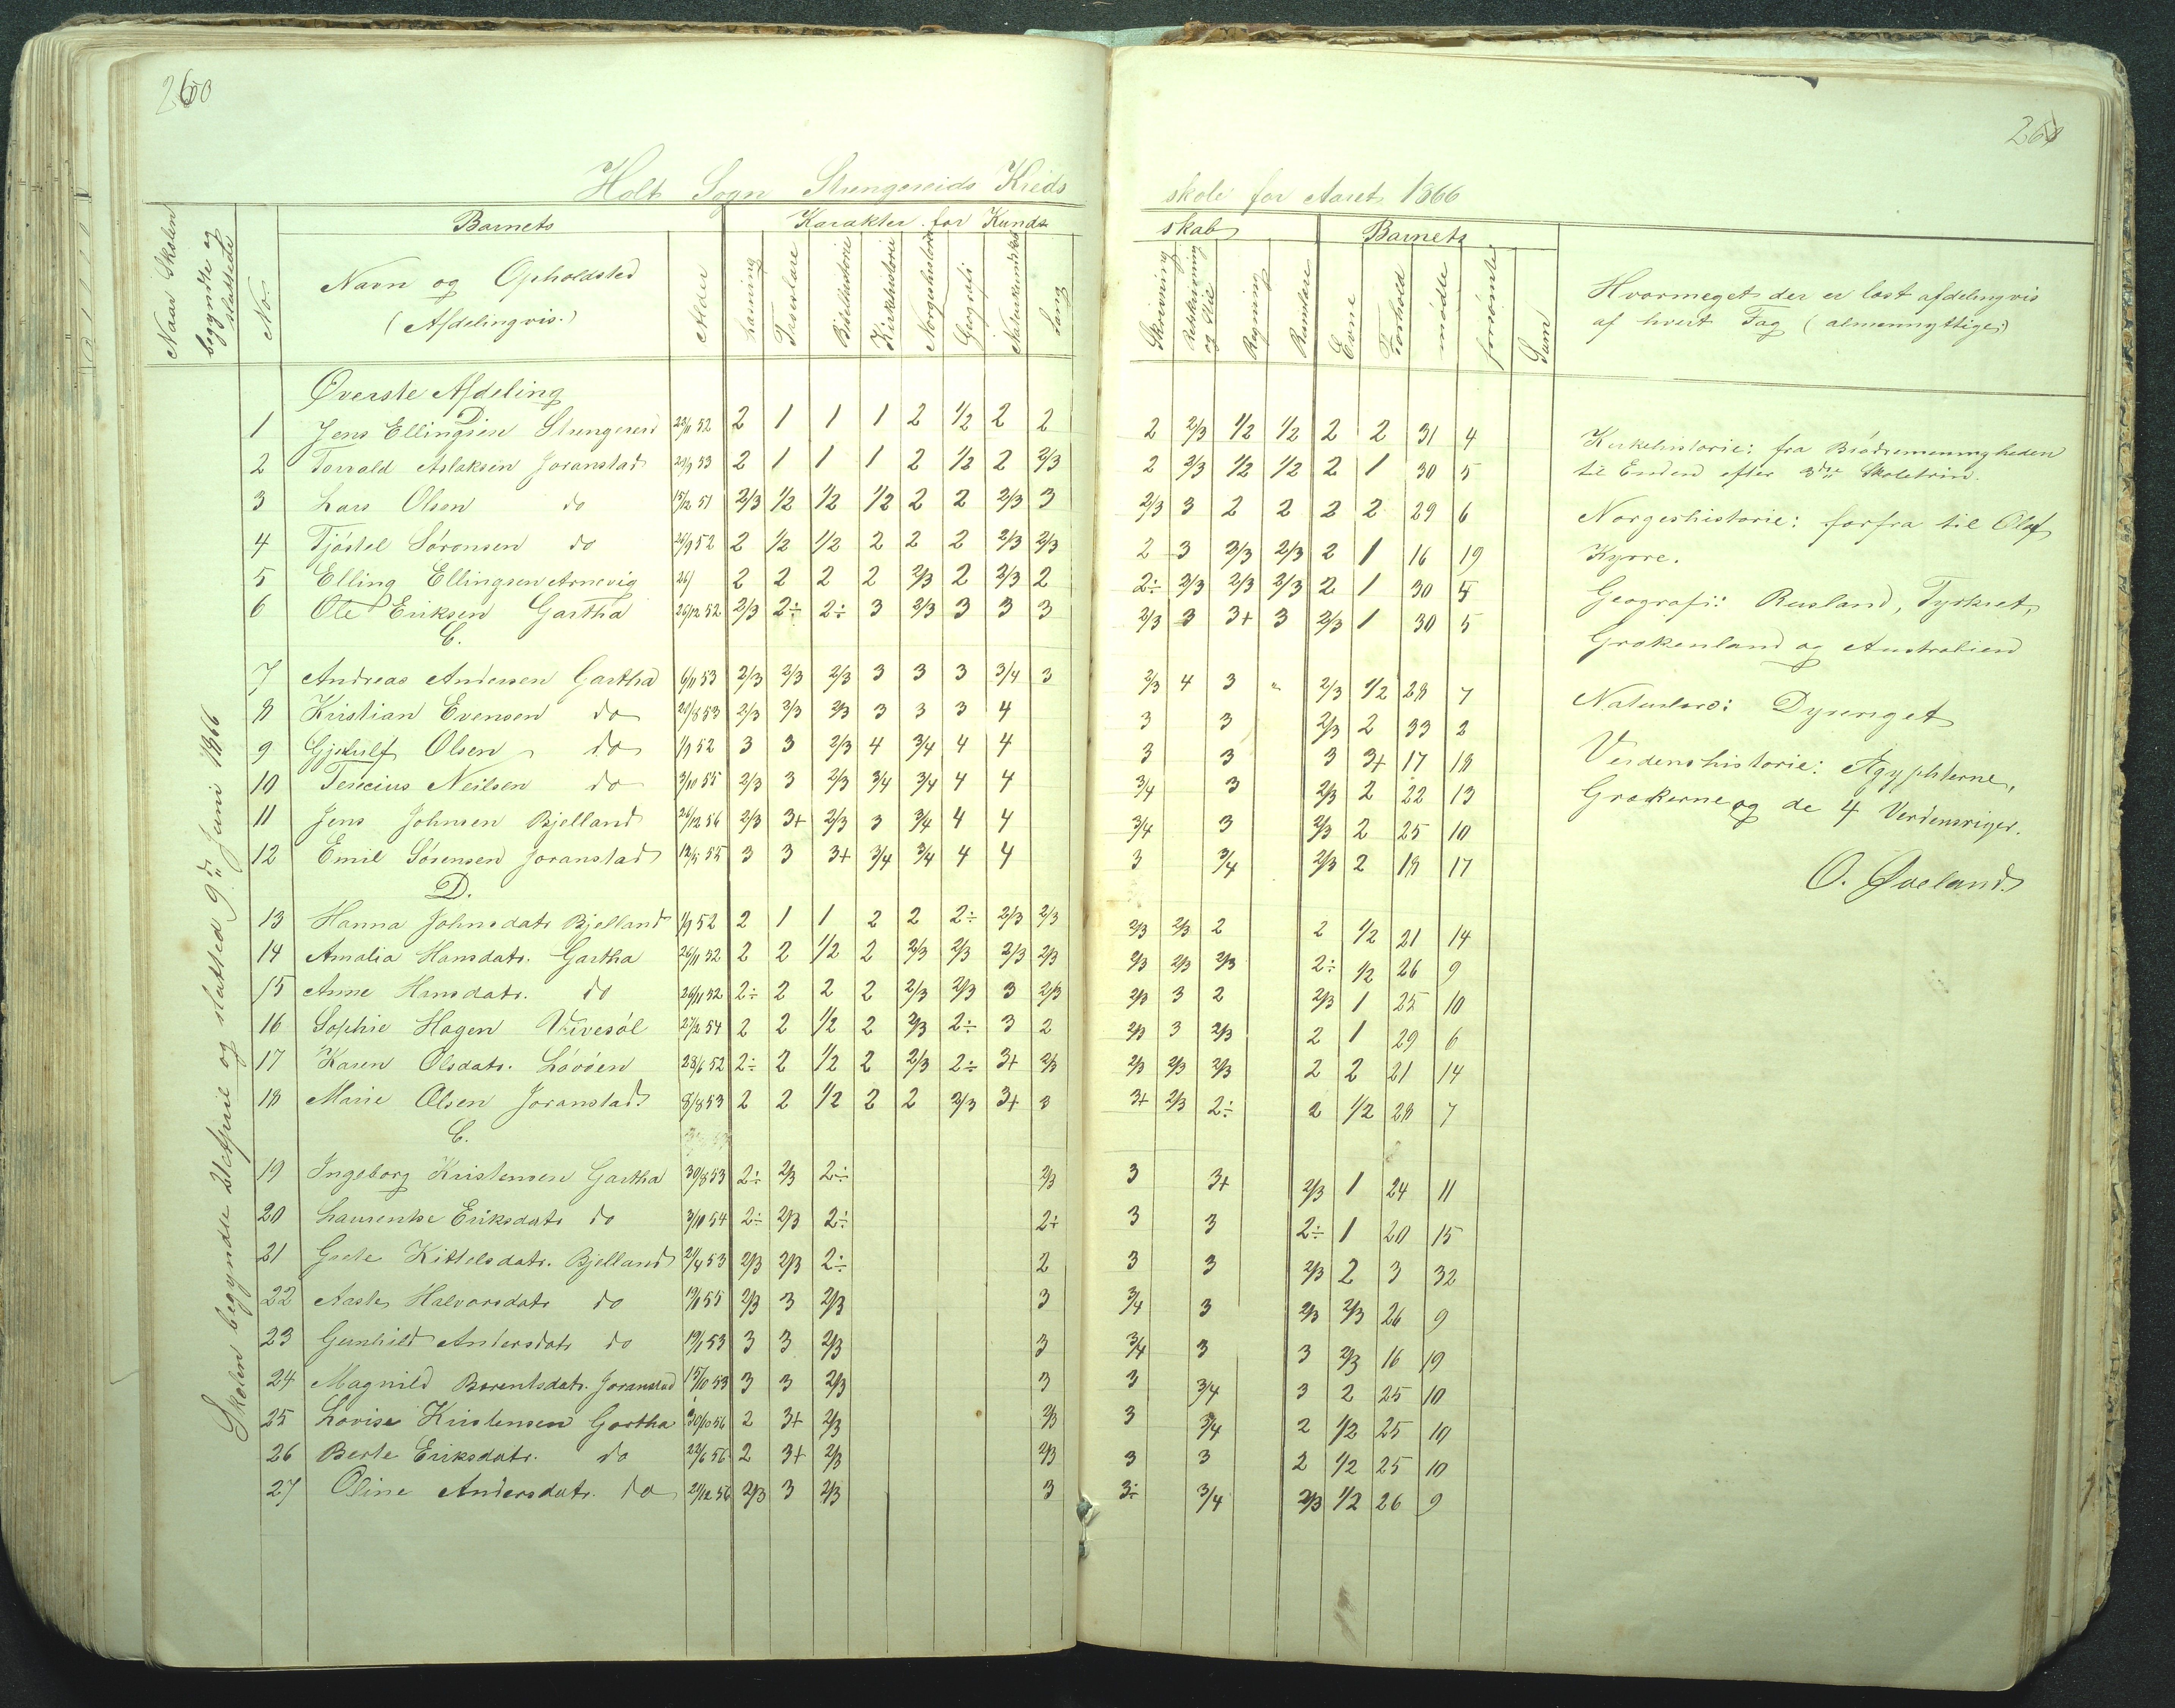 260
Holt Sogn Strengereids Kreds
Naar Skolen begyndte og sluttede
No.
Barnets
Navn og Opholdsted
(Afdelingvis.)
Alder
Karakter for Kunds
Læsning
Troeslære
Bibelhistorie
Kirkehistorie
Norgeshistorie
Geografi
Naturkundskab
Sang
Skolen begyndte 21 April og slutted 9de Juni 1866
Øverste Afdeling
D.
1 Jens Ellingsen Strengereid 22/11 52 2 1 1 1 2 1/2 2 2
2 Torvald Aslaksen Joranstad 29/9 53 2 1 1 1 2 1/2 2 2/3
3 Lars Olsen do 15/12 51 2/3 1/2 1/2 1/2 2 2 2/3 3
4 Tjöstel Sørensen do 24/9 52 2 1/2 1/2 2 2 2 2/3 2/3
5 Elling Ellingsen Arnevig 26/ 2 2 2 2 2/3 2 2/3 2
6 Ole Eriksen Gartha 26/12 52 2/3 2÷ 2÷ 3 2/3 3 3 3
C.
7 Andreas Andersen Gartha 6/11 53 2/3 2/3 2/3 3 3 3 3/4 3
8 Kristian Evensen do 20/8 53 2/3 2/3 2/3 3 3 3 4
9 Gjelulf Olsen do 1/9 52 3 3 2/3 4 3/4 4 4
10 Terecius Neilsen do 3/10 55 2/3 3 2/3 3/4 3/4 4 4
11 Jens Johnsen Bjelland 26/12 56 2/3 3+ 2/3 3 3/4 4 4
12 Emil Sørensen Joranstad 12/5 55 3 3 3+ 3/4 3/4 4 4
D.
13 Hanna Johnsdatr Bjelland 1/9 52 2 1 1 2 2 2÷ 2/3 2/3
14 Amalia Hansdatr. Gartha 26/11 52 2 2 1/2 2 2/3 2/3 2/3 2/3
15 Anne Hansdatr. do 26/11 52 2÷ 2 2 2 2/3 2/3 3 2/3
16 Sophie Hagen Vivesøl 27/2 54 2 2 1/2 2 2/3 2÷ 3 2
17 Karen Olsdatr. Løvøen 28/6 52 2÷ 2 1/2 2 2/3 2÷ 3+ 2/3
18 Marie Olsen Joranstad 8/8 53 2 2 1/2 2 2 2/3 3+ 3
C.
19 Ingeborg Kristensen Gartha 30/8 53 2÷ 2/3 2÷ 2/3
20 Laurentse Eriksdatr do 3/10 54 2÷ 2/3 2÷ 2÷
21 Grete Kittelsdatr. Bjelland 21/4 53 2/3 2/3 2÷ 2
22 Aaste Halvorsdatr do 19/1 55 2/3 3 2/3 3
23 Gunhild Andersdatr do 19/1 53 3 3 2/3 3
24 Magnild Berentsdatr. Joranstad 15/10 53 3 3 2/3 3
25 Lovise Kristensen Gartha 30/10 56 2 3+ 2/3 2/3
26 Berte Eriksdatr. do 22/6 56 2 3+ 2/3 2/3
27 Oline Andersdatr. do 21/12 56 2/3 3 2/3 3
261
skole for Aaret 1866
skab
Skrivning
Retskrivning og Stil
Regning
Barnets
Evne
Forhold
mødte
forsømte
Sum
Hvormeget der er læst afdelingvis
af hvert Fag (almennyttige)
2 2/3 1/2 1/2 2 2 31 4
2 2/3 1/2 1/2 2 1 30 5
2/3 3 2 2 2 2 29 6
2 3 2/3 2/3 2 1 16 19
2÷ 2/3 2/3 2/3 2 1 30 5
2/3 3 3+ 3 2/3 1 30 5
2/3 4 3 " 2/3 1/2 28 7
3 3 2/3 2 33 2
3 3 3 3+ 17 18
3/4 3 2/3 2 22 13
3/4 3 2/3 2 25 10
3 3/4 2/3 2 18 17
2/3 2/3 2 2 1/2 21 14
2/3 2/3 2/3 2÷ 1/2 26 9
2/3 3 2 2/3 1 25 10
2/3 3 2/3 2 1 29 6
2/3 2/3 2/3 2 2 21 14
3+ 2/3 2÷ 2 1/2 28 7
3 3+ 2/3 1 24 11
3 3 2÷ 1 20 15
3 3 2/3 2 3 32
3/4 3 2/3 2/3 26 9
3/4 3 3 2/3 16 19
3 3/4 3 2 25 10
3 3/4 2 1/2 25 10
3 3 2 1/2 25 10
3÷ 3/4 2/3 1/2 26 9
Kirkehistorie: fra Brødremenigheden
til Enden efter 3die Skoletrin.
Norgeshistorie: forfra til Olaf
Kyrre.
Geografi: Rusland, Tyrkiet,
Grækenland og Australien
Naturlære: Dyreriget
Verdenshistorie: Ægypterne,
Grækerne og de 4 Verdensriger.
O. Øveland